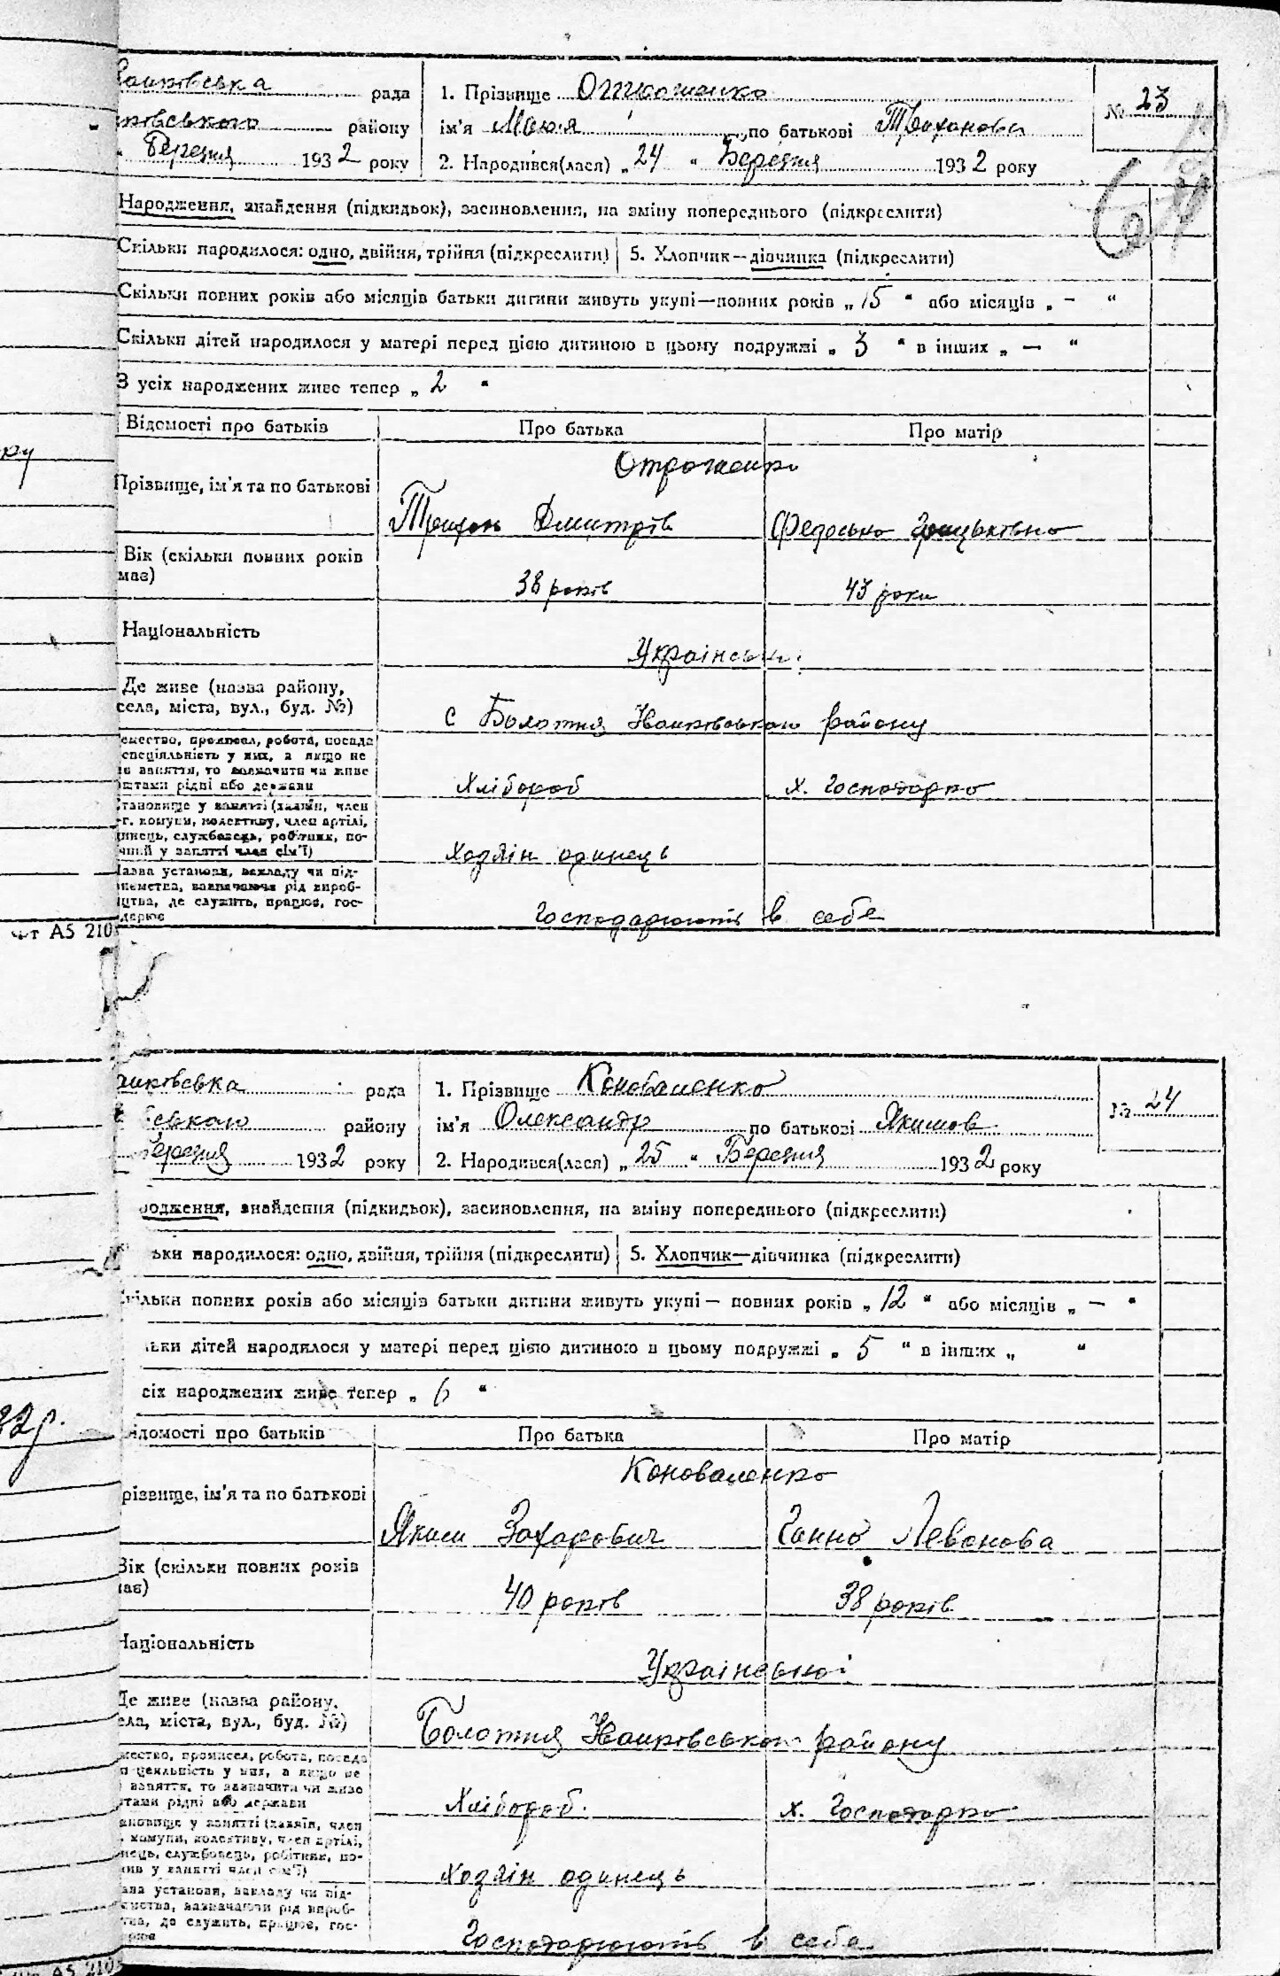 рада
району
Березня 1932 року
1. Прізвище
ім'я по батькові
2. Народився(лася) „24“ Березня 1932 року
№ 23
Народження, знайдення (підкидьок), засиновлення, на зміну попереднього (підкреслити)
Скільки народилося: одно, двійня, трійня (підкреслити) 5. Хлопчик—дівчинка (підкреслити)
Скільки повних років або місяців батьки дитини живуть укупі—повних років „15“ або місяців „-“
Скільки дітей народилося у матері перед цією дитиною в цьому подружжі „3“ в інших „—“
З усіх народжених живе тепер „2“
Відомості про батьків Про батька Про матір
Отрошенко
Прізвище, ім'я та по батькові
Трихон Дмитрів Федоська Грицьківна
Вік (скільки повних років
має)
38 років 43 роки
Національність
Де живе (назва району,
села, міста, вул., буд. №)
с Болотня Іванківського району
ремество, промисел, робота, посада
спеціяльність у них, а якщо не
заняття, то зазначити чи живе
штами рідні або держави
Хлібороб х. Господарка
тановище у занятті (хазяїн, член
г. комуни, колективу, член артілі,
динець, службовець, робітник, по-
чний у занятті член сім'ї)
Хазяїн одинець
Назва установи, закладу чи під-
приємства, зазначаючи рід вироб-
ництва, де служить, працює, гос-
подарює
Господарюють в себе
ат А5 210
анківська рада
ського району
Березня 1932 року
1. Прізвище Коноваленко
ім'я Олександр по батькові Якимов
2. Народився(лася) „25“ Березня 1932 року
№ 24
родження, знайдення (підкидьок), засиновлення, на зміну попереднього (підкреслити)
льки народилося: одно, двійня, трійня (підкреслити) 5. Хлопчик—дівчинка (підкреслити)
Скільки повних років або місяців батьки дитини живуть укупі — повних років „12“ або місяців „—“
льки дітей народилося у матері перед цією дитиною в цьому подружжі „5“ в інших „ “
сіх народжених живе тепер „6“
32р.
ідомості про батьків Про батька Про матір
Коноваленко
різвище, ім'я та по батькові
Яким Захарович Ганна Левонова
Вік (скільки повних років
має)
40 років 38 років
Національність
Де живе (назва району,
ела, міста, вул., буд. №)
Болотня Іванківського району
мество, промисел, робота, посада
цяльність у них, а якщо не
заняття, то зазначити чи живе
тами рідні або держави
Хлібороб. х. Господарка
ановище у занятті (хазяїн, член
комуни, колективу, член артілі,
нець, службовець, робітник, по-
чний у занятті член сім'ї)
Хазяїн одинець
ава установи, закладу чи під-
ємства, зазначаючи рід вироб-
тва, де служить, працює, гос-
Господарюють в себе
А5 210